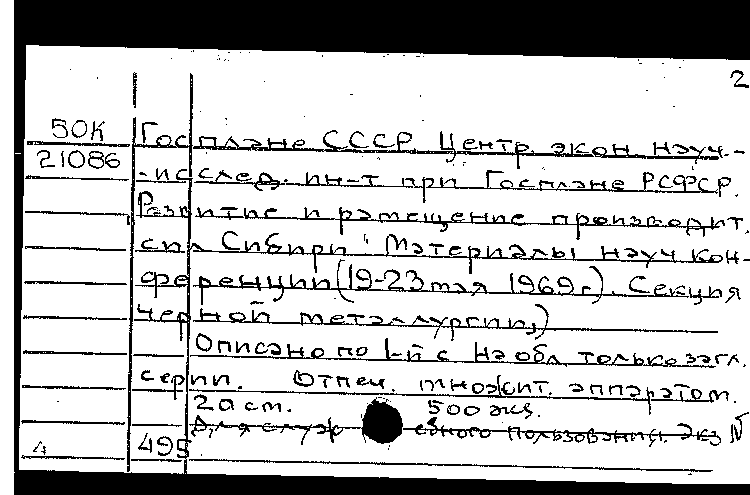 2
50К Госплане СССР. Центр. экон науч.-
21086 -исслед. ин-т при Госплане РСФСР.
Развитие и рамещение производит.
сил Сибири Материалы науч кон-
ференции (19-23 мая 1969 г.). Секция
черной металлургии,)
Описано по 1-й с На обл только загл.
серии. Отпеч. множит. аппаратом.
20 cm. 500 экз.
Для служебного пользования. Экз №
4 495